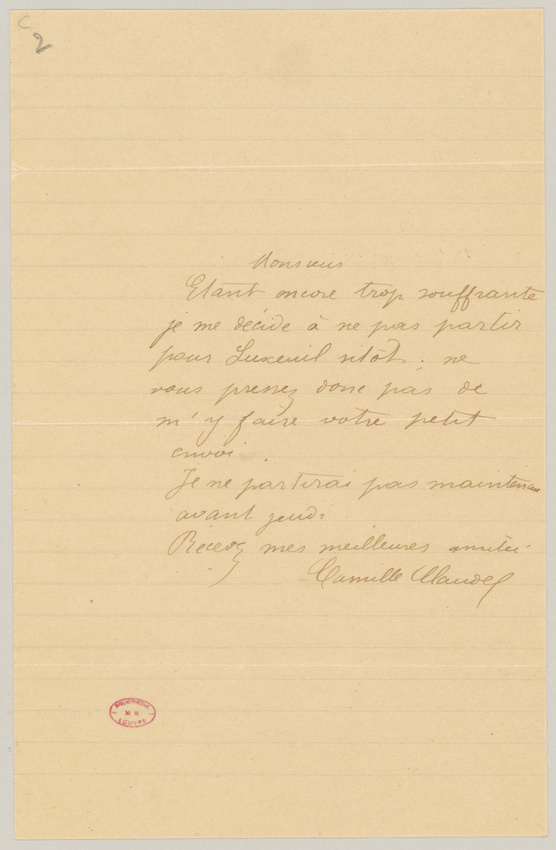 C
2
Monsieur
Etant encore trop souffrante
je me décide à ne pas partir
pour Luxeuil sitôt ; ne
vous pressez donc pas de
m'y faire votre petit
envoi.
Je ne partirai pas maintenant
avant jeudi
Recevez mes meilleures amitiés
Camille Claudel
BIBLIOTHÈQUE
M. N.
LOUVRE